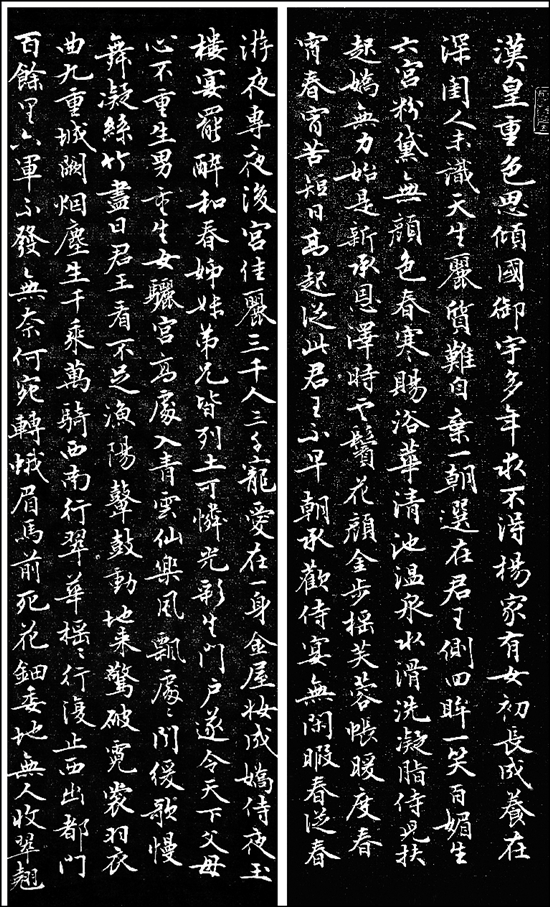 漢皇重色思傾國御宇多年求不得楊家有女初長成養在
深閨人未識天生麗質難自棄一朝選在君王側回眸一笑百媚生
六宮粉黛無顏色春寒賜浴華清池温泉水滑洗凝脂侍兒扶
起嬌無力始是新承恩澤時雲鬢花顏金步摇芙蓉帳暖度春
宵春宵苦短日高起從此君王不早朝承歡侍宴無閑暇春從春
游夜專夜後宮佳麗三千人三千寵愛在一身金屋妝成嬌侍夜玉
樓宴罷醉和春姊妹弟兄皆列土可憐光彩生門户遂令天下父母
心不重生男重生女驪宮高處入青雲仙樂風飄處〻聞緩歌慢
舞凝絲竹盡日君王看不足漁陽鼙鼓動地來驚破霓裳羽衣
曲九重城闕烟塵生千乘萬騎西南行翠華摇〻行復止西出都門
百餘里六軍不發無奈何宛轉蛾眉馬前死花鈿委地無人收翠翹